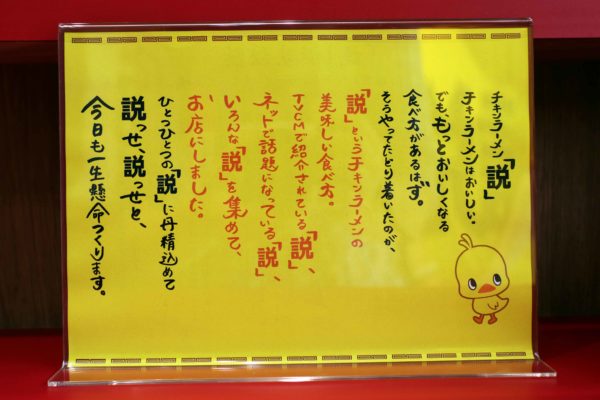 チキンラーメン「説」
チキンラーメンはおいしい。
でも、もっとおいしくなる
食べ方があるはず。
そうやってたどり着いたのが、
「説」というチキンラーメンの
美味しい食べ方。
TVCMで紹介されている「説」、
ネットで話題になっている「説」、
いろんな「説」を集めて、
お店にしました。
ひとつひとつの「説」に丹精込めて
説っせ、説っせと、
今日も一生懸命つくります。